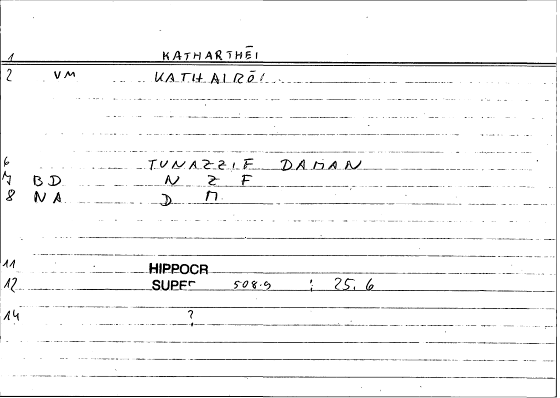 1 KATHARTHĒI
2 VM KATHAIRŌ
6 TUNAZZIF DAMAN
7 BD N Z F
8 NA D M
11 HIPPOCR
12 SUPER 508.9 : 25.6
14 ?